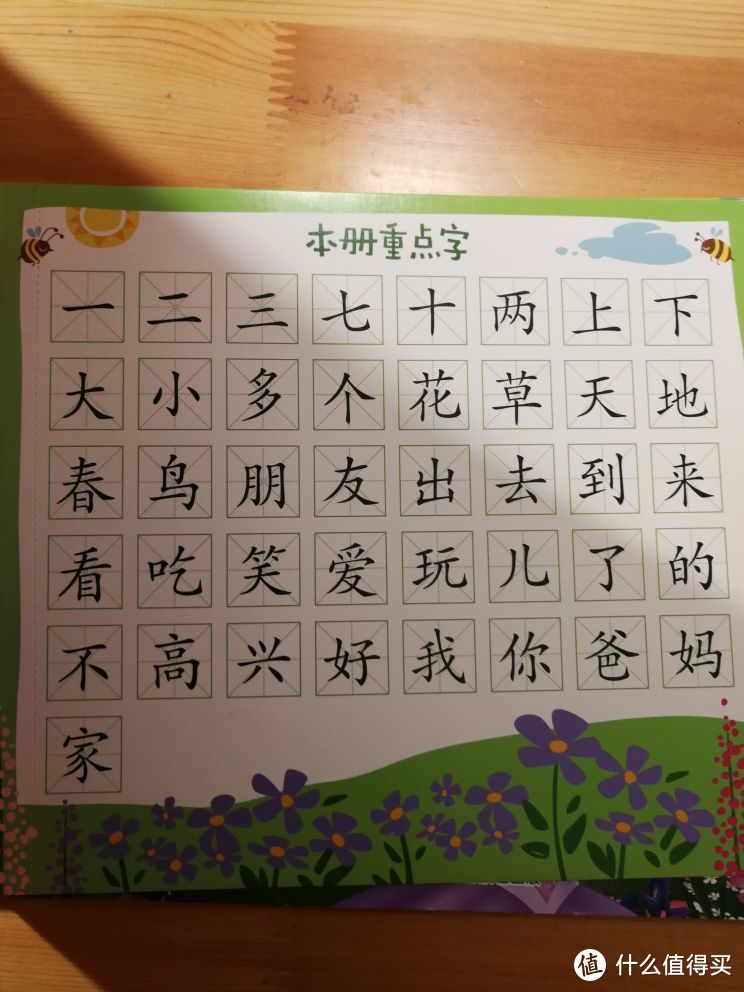 本册重点字
一 二 三 七 十 两 上 下
大 小 多 个 花 草 天 地
春 鸟 朋 友 出 去 到 来
看 吃 笑 爱 玩 儿 了 的
不 高 兴 好 我 你 爸 妈
家
值 什么值得买